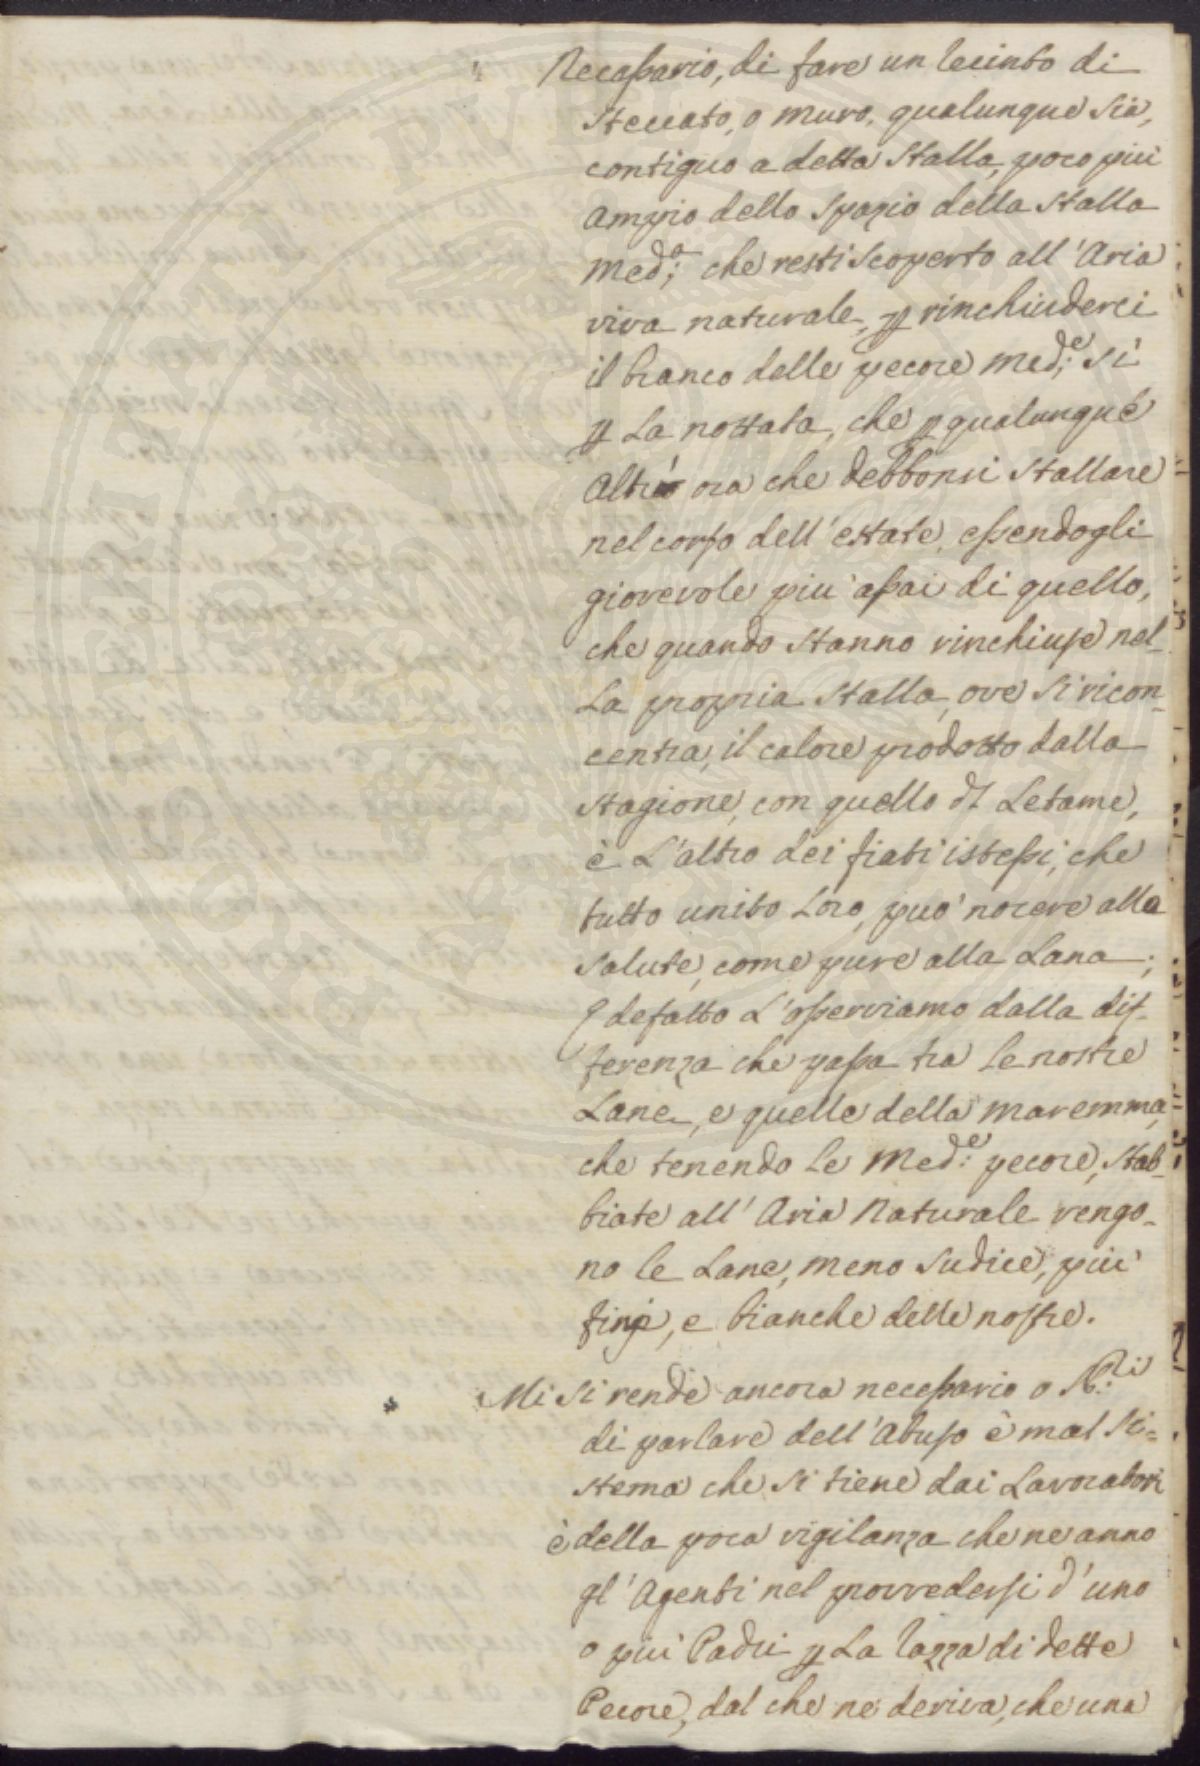 Necessario, di fare un recinto di
steccato, o muro, qualunque sia,
contiguo a detta Stalla, poco più
ampio dello Spazio della Stalla
Med.a; che resti Scoperto all'Aria
viva naturale, p rinchiuderci
il branco delle pecore Med.e; Sì
p La nottata, che p qualunque
Altra ora che debbonsi Stallare
nel corso dell'estate, essendogli
giovevole più assai di quello,
che quando Stanno rinchiuse nel-
La propria Stalla, ove Si ricon-
centra, il calore prodotto dalla
Stagione, con quello dl Letame,
è L'altro dei fiati istessi, che
tutto unito Loro, può nocere alla
Salute, come pure alla Lana;
E defatto L'osserviamo dalla dif-
ferenza che passa tra le nostre
Lane, e quelle della maremma,
che tenendo Le Med.e pecore, Stab-
biate all'Aria Naturale vengo-
no le Lane, meno Sudice, più
fine, e bianche delle nostre.
Mi Si rende ancora necessario o SS.ri
di parlare dell'Abuso è mal Si=
stema che Si tiene dai Lavoratori
è della poca vigilanza che ne anno
gl'Agenti nel provvedersi d'uno
o più Padri p La razza di dette
Pecore, dal che ne deriva, che una